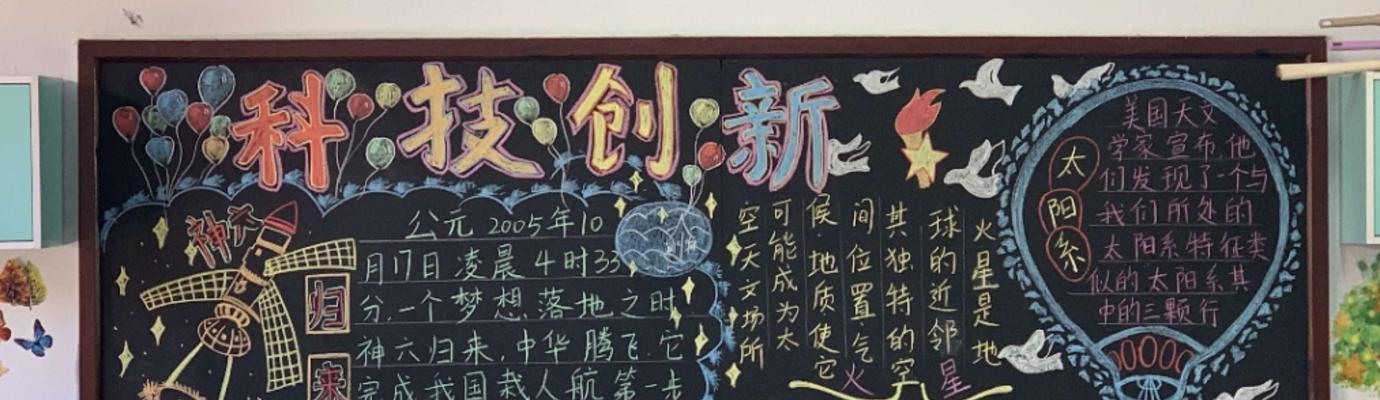 科技创新
神六
归来
公元 2005年10
月17日凌晨4时33
分,一个梦想落地之时
神六归来,中华腾飞.它
完成我国载人航第一步
火星是地
球的近邻
其独特的空
间位置气
候地质使它
可能成为太
空天文场所
火星
太阳系
美国天文
学家宣布,他
们发现了一个与
我们所处的
太阳系特征类
似的太阳系其
中的三颗行